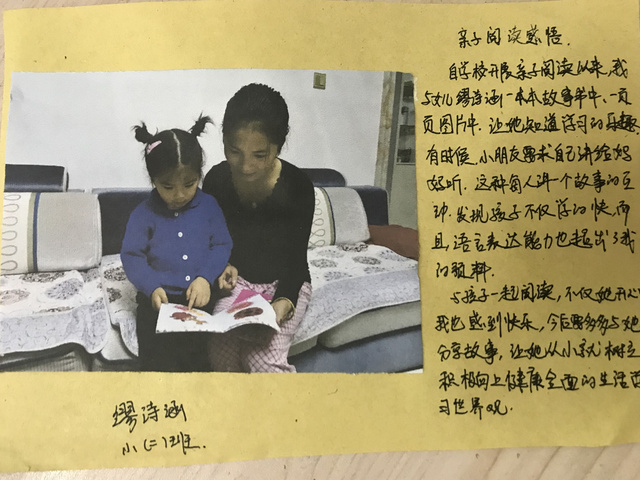 亲子阅读感悟.
自学校开展亲子阅读以来,我
与女儿缪诗涵一本本故事书中、一页
页图片中.让她知道学习的乐趣
有时候,小朋友要求自己讲给妈
妈听.这种每人讲一个故事的互
动,发现孩子不仅学的快,而
且语言表达能力也超出了我
的预料.
与孩子一起阅读,不仅她开心
我也感到快乐,今后要多多与她
分享故事,让她从小就树立
积极向上健康全面的生活
习世界观.
缪诗涵
小(二)班.